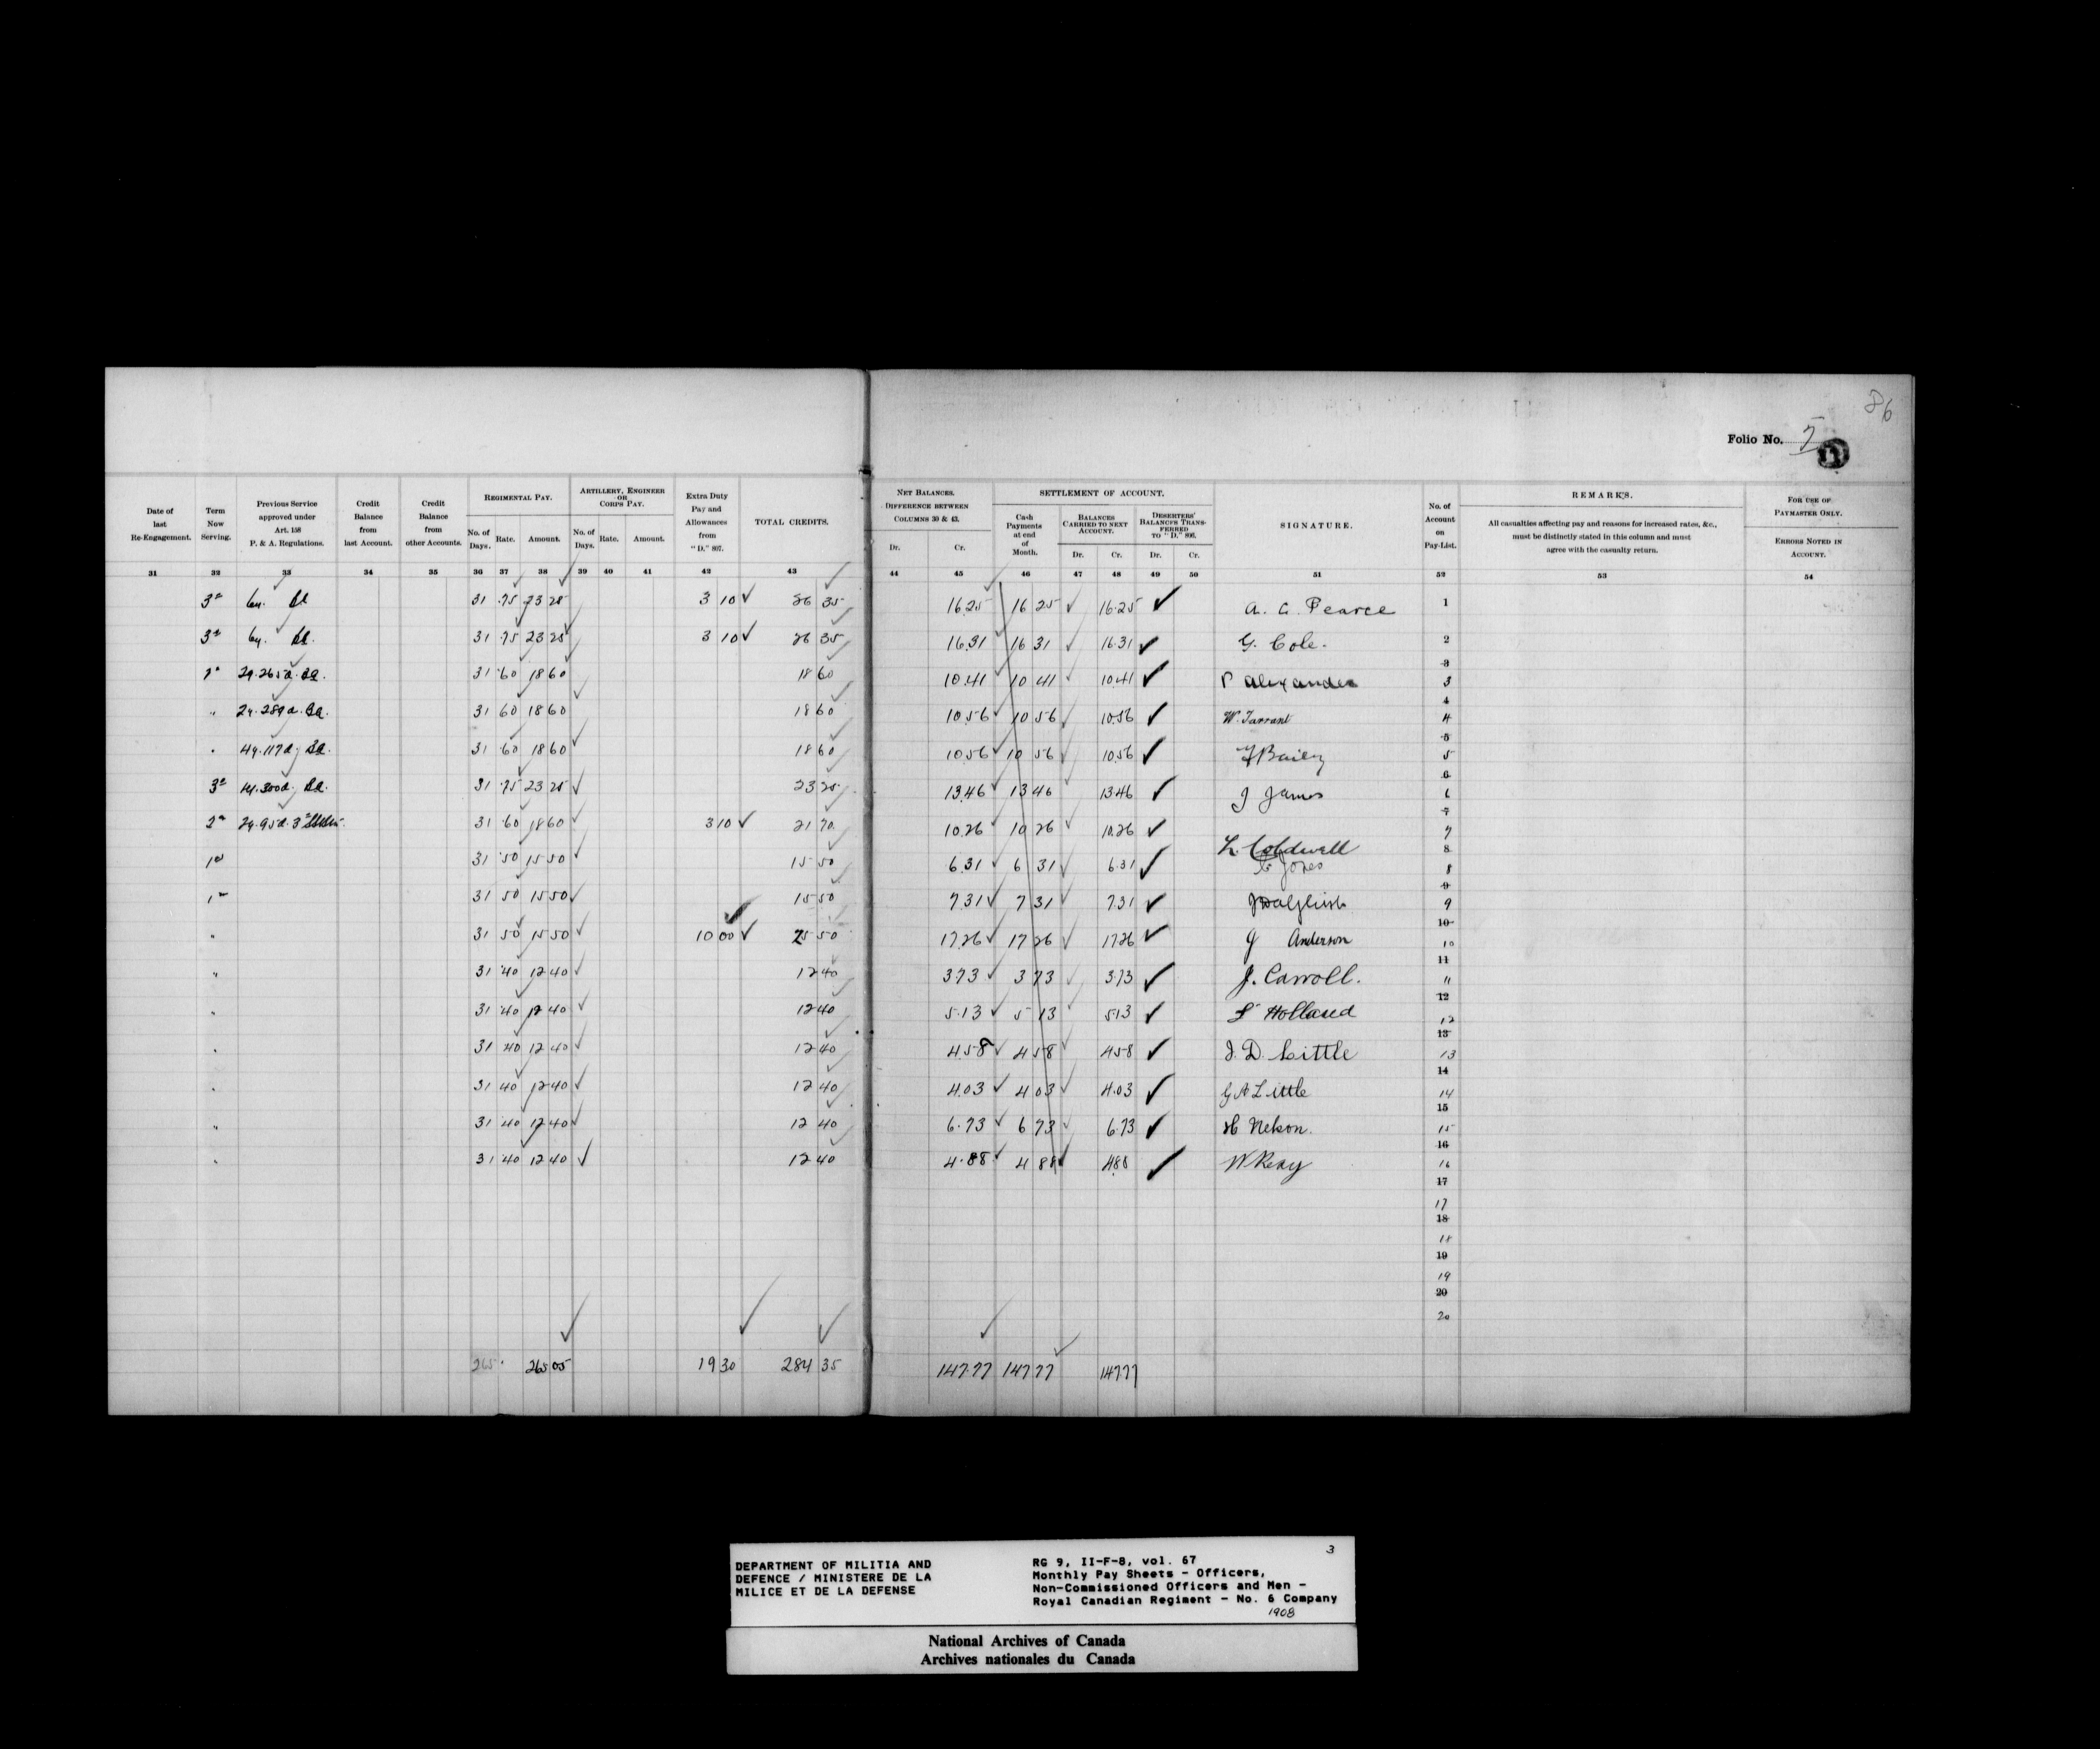 86
Folio No. 7
Date of last Re-Engagement.
Term Now Serving.
Previous Service approved under Art. 158 P. & A. Regulations.
Credit Balance from last Account.
Credit Balance from other Accounts.
REGIMENTAL PAY.
No. of Days.
Rate.
Amount.
ARTILLERY, ENGINEER OR CORPS PAY.
No. of Days.
Rate.
Amount.
Extra Duty Pay and Allowances from "D," 807.
TOTAL CREDITS.
NET BALANCES. DIFFERENCE BETWEEN COLUMNS 30 & 43.
Dr.
Cr.
SETTLEMENT OF ACCOUNT.
Cash Payments at end of Month.
BALANCES CARRIED TO NEXT ACCOUNT.
Dr.
Cr.
DESERTERS' BALANCES TRANSFERRED TO "D," 806.
Dr.
Cr.
SIGNATURE.
No. of Account on Pay-List.
REMARKS.
All casualties affecting pay and reasons for increased rates, &c., must be distinctly stated in this column and must agree with the casualty return.
FOR USE OF PAYMASTER ONLY.
ERRORS NOTED IN ACCOUNT.
31 32 33 34 35 36 37 38 39 40 41 42 43 44 45 46 47 48 49 50 51 52 53 54
31 .75 23 25 3 10 26 35 16.25 16 25 16.25 A. C. Pearce 1
31 .75 23 25 3 10 26 35 16.31 16 31 16.31 G. Cole. 2
31 .60 18 60 18 60 10.41 10 41 10.41 P Alexander 3
31 60 18 60 18 60 10.56 10 56 10.56 W. Tarrant 4
31 .60 18 60 18 60 10.56 10 56 10.56 F Bailey 5
31 .75 23 25 23 25 13.46 13 46 13.46 J James 6
31 .60 18 60 3 10 21 70 10.26 10 26 10.26 L. Coldwell 7
31 .50 15 50 15 50 6.31 6 31 6.31 C Jones 8
31 50 15 50 15 50 7.31 7 31 7.31 J Dalgleish 9
31 50 15 50 10 00 25 50 17.26 17 26 17.26 J Anderson 10
31 .40 12 40 12 40 3.73 3 73 3.73 J. Carroll. 11
31 .40 12 40 12 40 5.13 5 13 5.13 F Holland 12
31 40 12 40 12 40 4.58 4 58 4.58 J. D. Little 13
31 40 12 40 12 40 4.03 4 03 4.03 G A Little 14
31 40 12 40 12 40 6.73 6 73 6.73 H Nelson. 15
31 40 12 40 12 40 4.88 4 88 4.88 W Reay 16
17
18
19
20
265 265 05 19 30 284 35 147.77 147 77 147.77
3
DEPARTMENT OF MILITIA AND
DEFENCE / MINISTERE DE LA
MILICE ET DE LA DEFENSE
RG 9, II-F-8, vol. 67
Monthly Pay Sheets - Officers,
Non-Commissioned Officers and Men -
Royal Canadian Regiment - No. 6 Company
1908
National Archives of Canada
Archives nationales du Canada